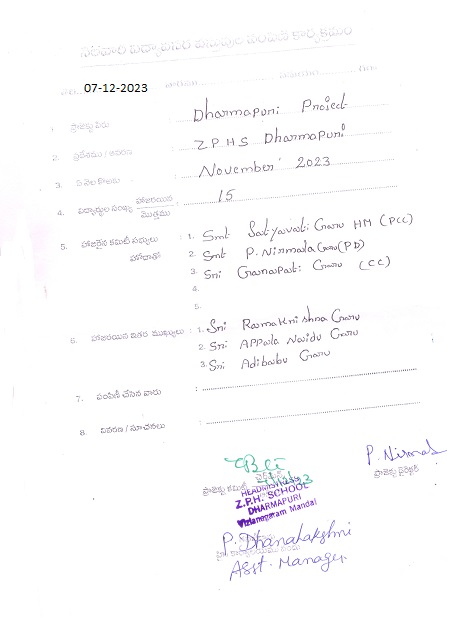 నిరుపేద విద్యార్థినీ విద్యార్థుల పంపిణీ కార్యక్రమం
07-12-2023
1. ప్రాజెక్టు పేరు Dharmapuri Project
2. ప్రదేశము / ఆవరణ Z.P.H.S Dharmapuri
3. ఏ నెల కొరకు November 2023
4. విద్యార్థుల సంఖ్య హాజరయిన / మొత్తము 15
5. హాజరైన కమిటీ సభ్యులు హోదాతో
1. Smt Satyavati Garu HM (PCC)
2. Smt P. Nirmala Garu (PD)
3. Sri Ganapati Garu (CC)
4.
5.
6. హాజరయిన ఇతర ముఖ్యులు :
1. Sri Ramakrishna Garu
2. Sri Appala Naidu Garu
3. Sri Adibabu Garu
7. పంపిణీ చేసిన వారు :
8. వివరణ / సూచనలు :
P. Nirmala
ప్రాజెక్టు కమిటీ చైర్మన్ ప్రాజెక్టు డైరెక్టర్
HEADMISTRESS
Z.P.H. SCHOOL
DHARMAPURI
Vizianagaram Mandal
P. Dhanalakshmi
Asst. Manager